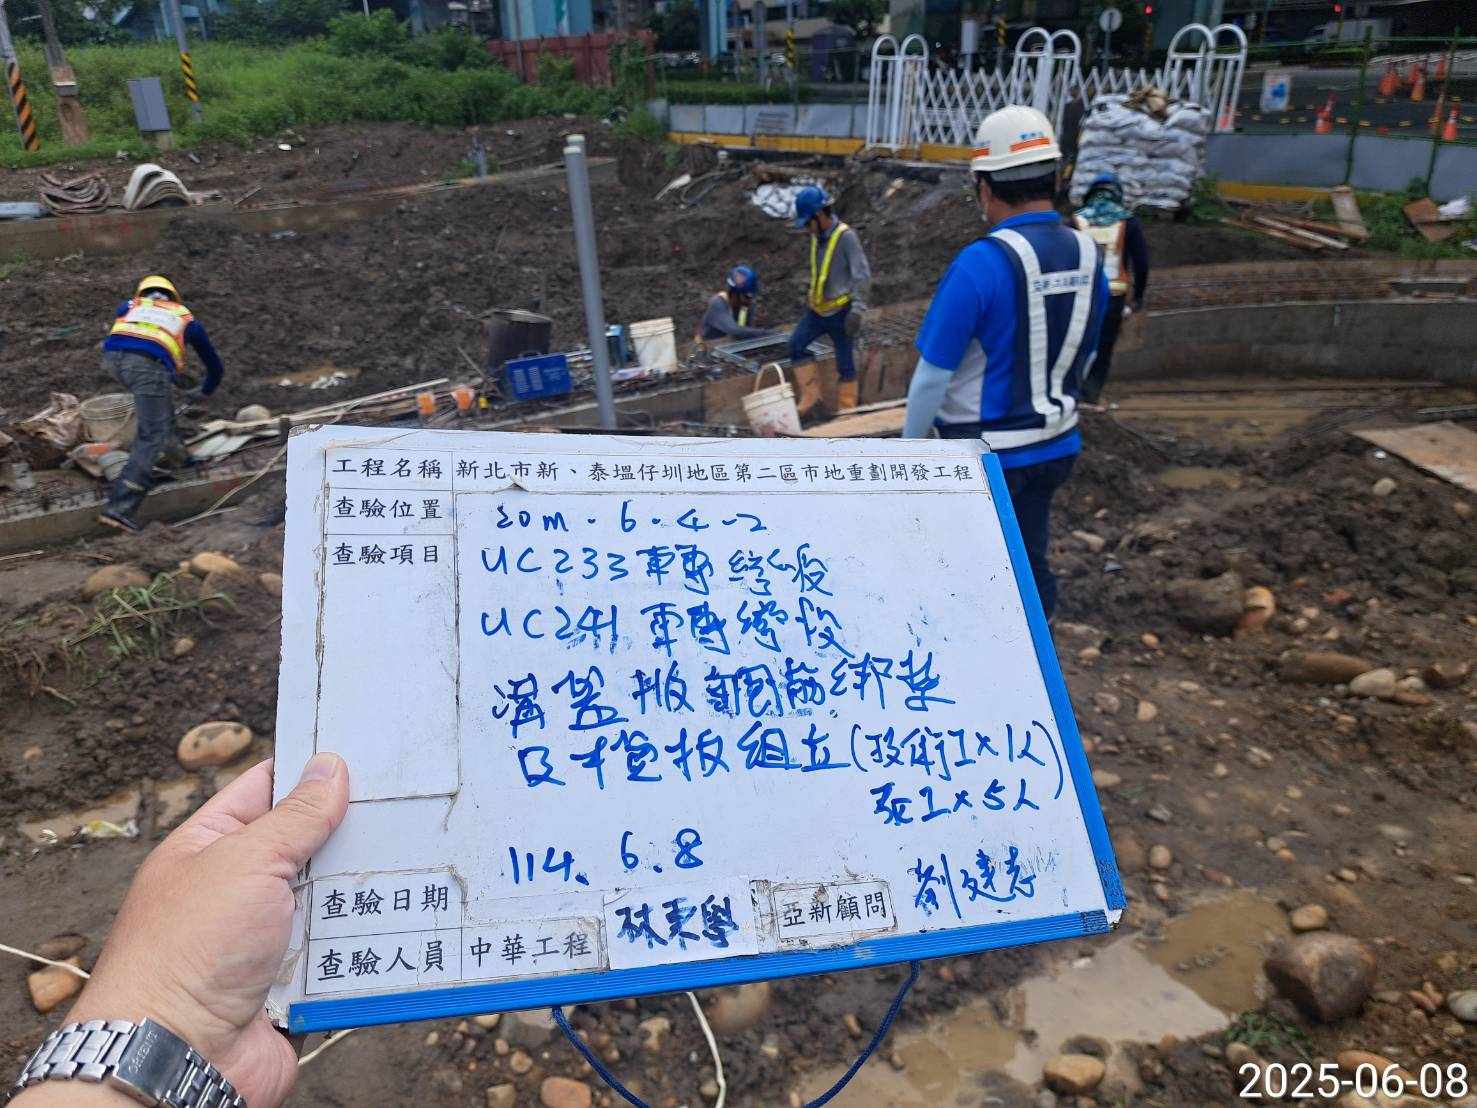 工程名稱 新北市新、泰塭仔圳地區第二區市地重劃開發工程
查驗位置 20m-6-4-2
查驗項目 UC233轉彎段
UC241轉彎段
溝蓋版鋼筋綁紮
及模板組立(技術工×1人
粗工×5人)
查驗日期 114.6.8
查驗人員 中華工程 林東學 亞新顧問 劉建志
2025-06-08